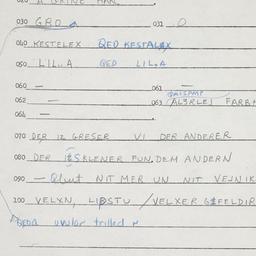 030 GRO 031 O
040 KESTELEX QED KESTALAX
050 LIL..A QED LIL.A
060 — 061 —
062 — 063 (AL3RLEI FARB
064 —
070 DER IZ GRESER VI DER ANDERER
080 DER KLENER FUN DEM ANDERN
090 — NIT MER UN NIT VEJNIK
100 VELXN, LIPSTU / VELXER GEFELDIR
uvular trilled r